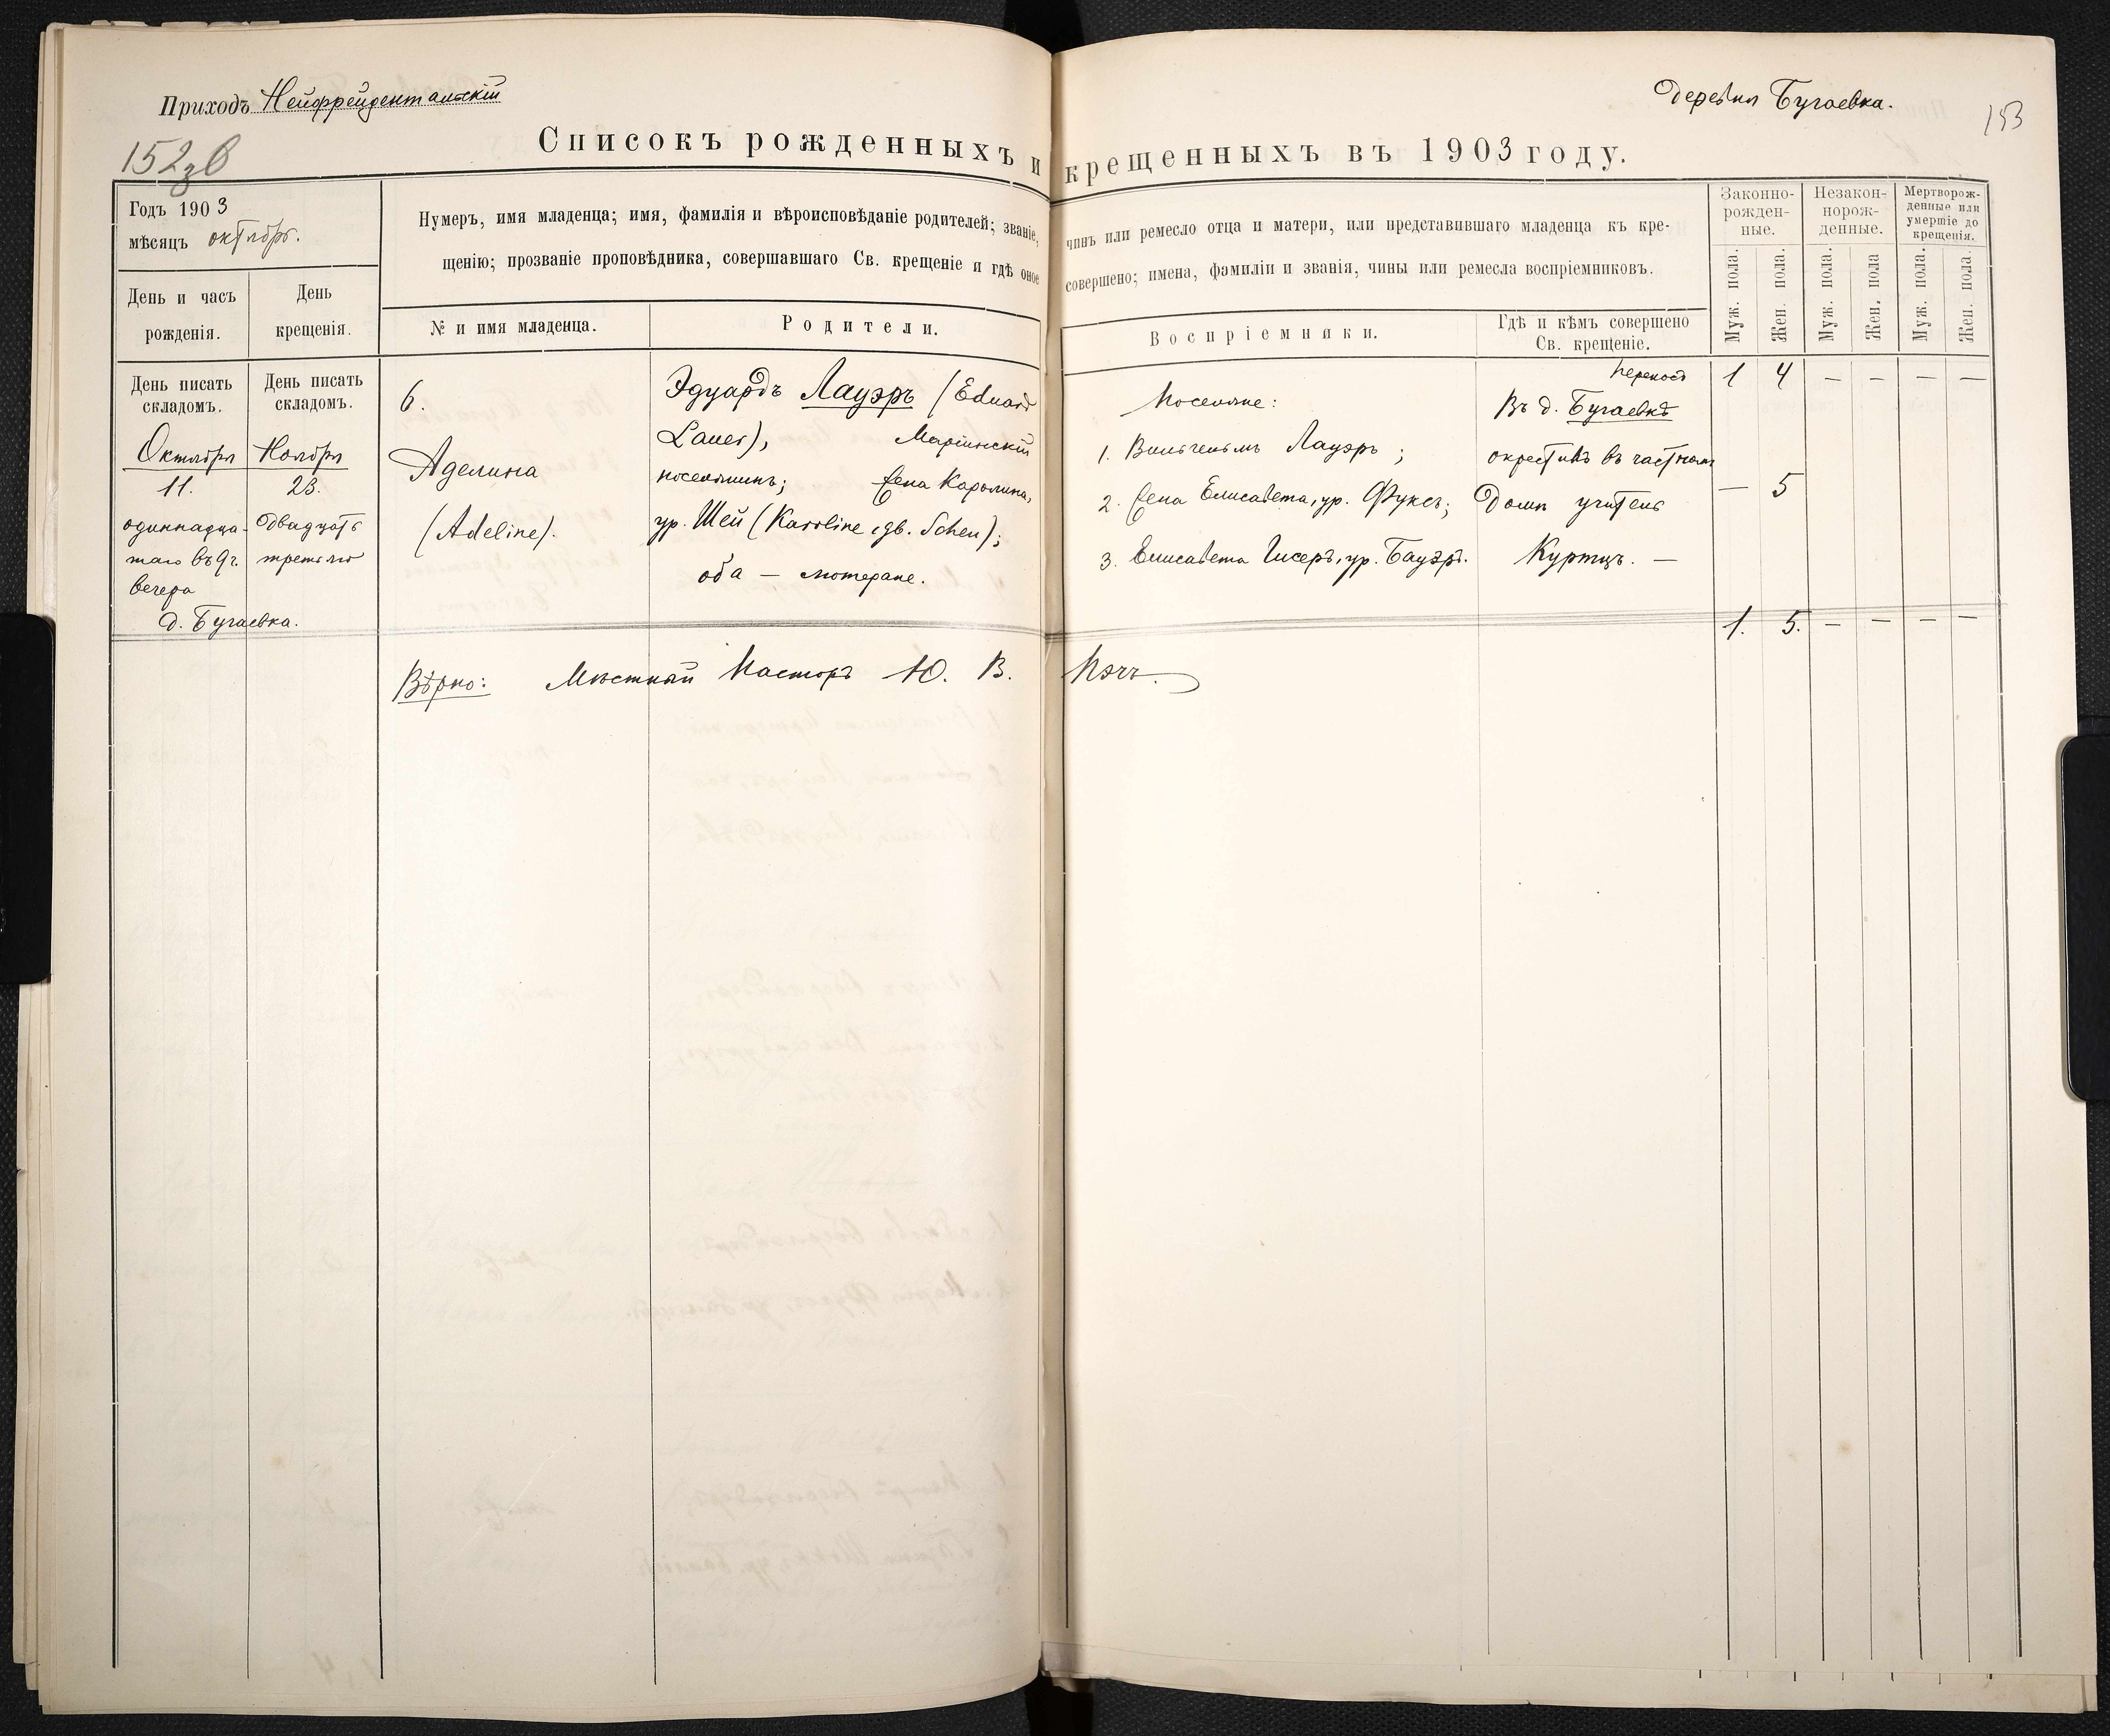 Приходъ Нейфрейдентальскій
деревня Бугаевка.
153
152 зв
Списокъ рожденныхъ и крещенныхъ въ 1903 году.
Годъ 1903
мѣсяцъ октябрь.
День и часъ рожденія.
День крещенія.
Нумеръ, имя младенца; имя, фамилія и вѣроисповѣданіе родителей; званіе, чинъ или ремесло отца и матери, или представившаго младенца къ кре-
щенію; прозваніе проповѣдника, совершавшаго Св. крещеніе и гдѣ оное совершено; имена, фамиліи и званія, чины или ремесла воспріемниковъ.
№ и имя младенца.
Родители.
Воспріемники.
Гдѣ и кѣмъ совершено
Св. крещеніе.
Законно-
рожден-
ные.
Незакон-
норож-
денные.
Мертворож-
денные или
умершіе до
крещенія.
Муж. пола.
Жен. пола.
Муж. пола.
Жен. пола
Муж. пола.
Жен. пола.
День писать
складомъ.
Октября
11.
одиннадца-
таго въ 9 ч.
вечера
д. Бугаевка.
День писать
складомъ.
Ноября
23.
двадцать
третьяго
6.
Аделина
(Adeline).
Эдуардъ Лауэръ (Eduard
Lauer), Маріинскій
поселянинъ; жена Каролина,
ур. Шей (Karoline, gb. Schey);
оба — лютеране.
Поселяне:
1. Вильгельмъ Лауэръ;
2. жена Елисавета, ур. Фуксъ;
3. Елисавета Гисеръ, ур. Бауэръ.
Переносъ
Въ д. Бугаевкѣ
окрестилъ въ частномъ
домѣ учитель
Куртцъ. —
1 4 — — — —
— 5
1. 5. — — — —
Вѣрно: Мѣстный Пасторъ Ю. В. Пэчъ.